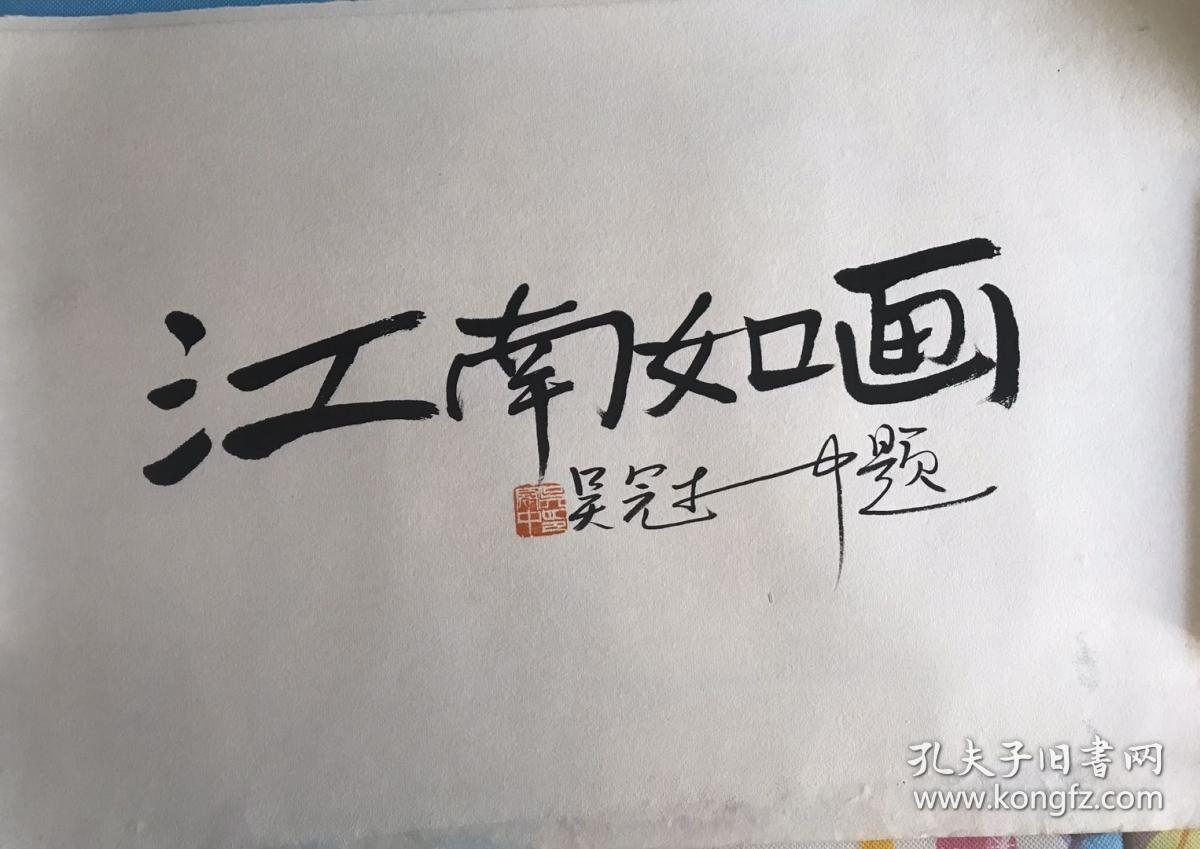 江南如画
吴冠中题
吴冠中印
孔夫子旧書网
www.kongfz.com